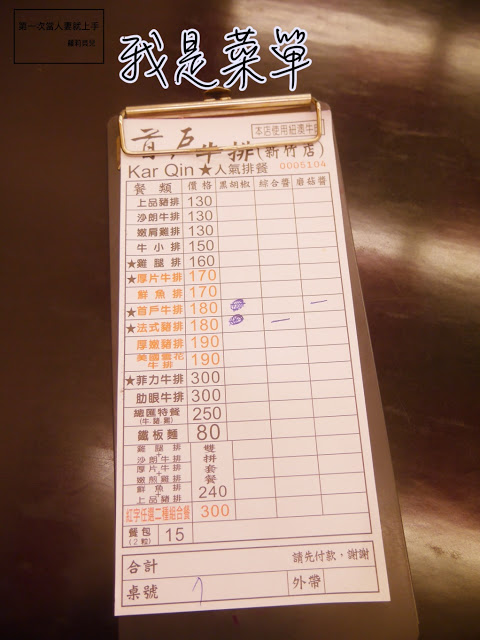 第一次當人妻就上手
我是菜單
本店使用紐澳牛肉
首戶牛排(新竹店)
Kar Qin★人氣排餐 0005104
餐類 價格 黑胡椒 綜合醬 蘑菇醬
上品豬排 130
沙朗牛排 130
嫩肩雞排 130
牛小排 150
★雞腿排 160
★厚片牛排 170
鮮魚排 170
★首戶牛排 180
★法式豬排 180
厚嫩豬排 190
美國雪花牛排 190
★菲力牛排 300
肋眼牛排 300
總匯特餐 250
(牛.豬.雞)
鐵板麵 80
雞腿排+沙朗牛排 雙
厚片牛排+嫩煎雞排 拼套
鮮魚排+上品豬排 餐 240
紅字任選二種組合餐 300
餐包(2粒) 15
合計 請先付款,謝謝
桌號 外帶